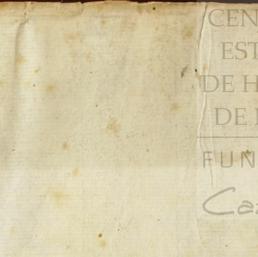 CEN
EST
DE H
DE
FUN
Ca